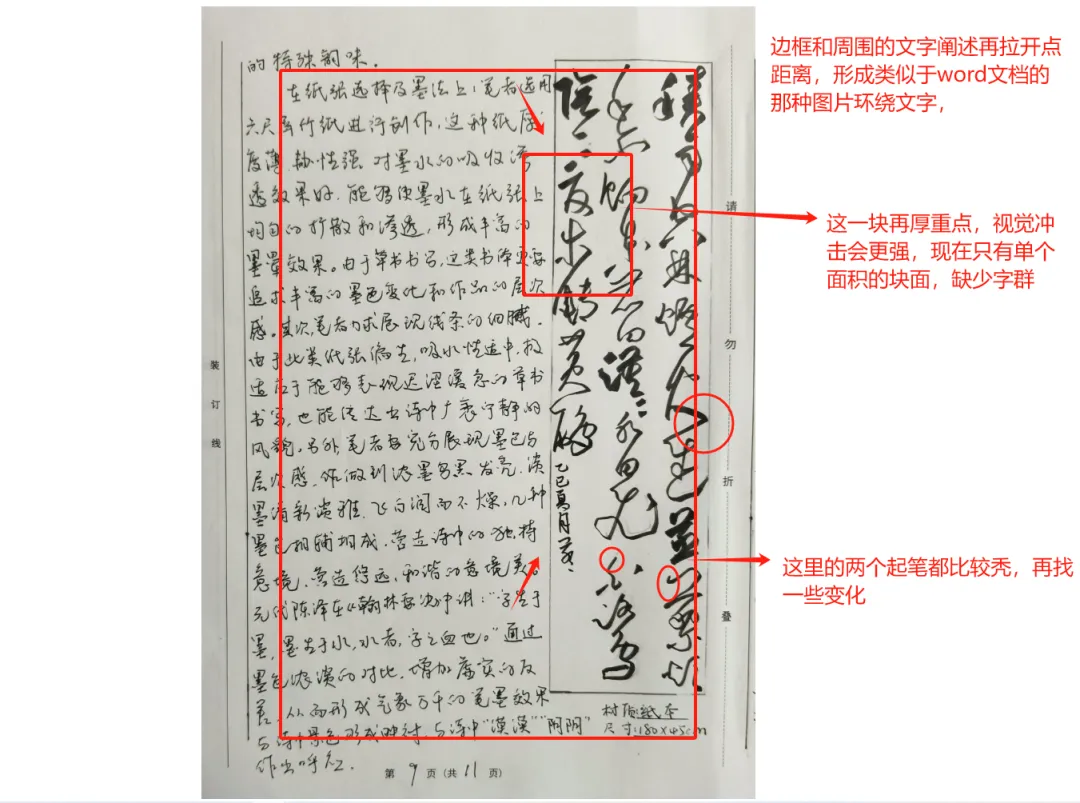 的特殊韵味。
在纸张选择及墨法上，笔者选用
六尺半竹纸进行创作，这种纸厚
度薄、韧性强、对墨水的吸收渗
透效果好，能够使墨水在纸张上
均匀的扩散和渗透，形成丰富的
墨晕效果。由于草书书写，这类书体更要
追求丰富的墨色变化和作品的层次
感。其次，笔者力求展现线条的细腻。
由于此类纸张偏生，吸水性适中，故
适应于能够表现迟涩缓急的草书
书写，也能传达出诗中广袤宁静的
风貌。另外，笔者要充分展现墨色与
层次感，你做到浓墨乌黑发亮，淡
墨清新淡雅，飞白润而不燥，几种
墨色相辅相成，营造诗中的独特
意境，营造悠远，和谐的意境美。
元代陈泽在《翰林要决》中讲："字生于
墨，墨生于水，水者，字之血也。"通过
墨色浓淡的对比，增加虚实的反
差，从而形成气象万千的笔墨效果
与诗中景色形成映衬，与诗中"漠漠""阴阴"
作出呼应。
積雨空林煙火遲蒸藜炊
黍餉東菑漠漠水田飛白鷺
陰陰夏木囀黃鸝
材质:纸本
尺寸:180×45cm
装订线
请勿折叠
第9页（共11页）
边框和周围的文字阐述再拉开点
距离，形成类似于word文档的
那种图片环绕文字，
这一块再厚重点，视觉冲
击会更强，现在只有单个
面积的块面，缺少字群
这里的两个起笔都比较秃，再找
一些变化